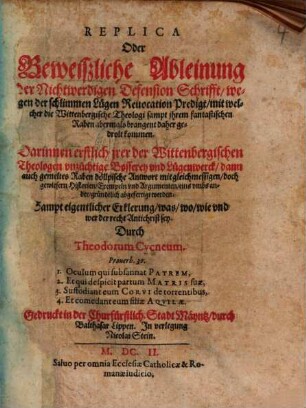 REPLICA
Oder
Beweißliche Ableinung
der Nichtwerdigen Defension Schrifft / we-
gen der schlimmen Lügen Reuocation Predigt / mit wel-
cher die Wittenbergische Theologi sampt ihrem fantastischen
Raben abermals brangent daher ge-
drolt kommen.
Darinnen erstlich jrer der Wittenbergischen
Theologen Bossserey und Lügenwerck / dann
auch gemeltes Raben döllpische Antwort mitgleichmessigen / doch
gewissern Historien / Exempeln und Argumenten / eins umbs an-
der gründtlich abgefertigt werden.
Sampt eigentlicher Erklerung / was / wo / wie vnd
wer der recht Antichrist sey.
Durch
Theodorum Cycneum.
Prouerb. 30.
1. Oculum qui subsannat PATREM,
2. Et qui despicit partum MATRIS suæ,
3. Suffodiant eum CORVI de torrentibus,
4. Et comedant eum filii AQVILÆ.
Gedruckt in der Churfürstlich. Stadt Mäyntz / durch
Balthasar Lippen. In verlegung
Nicolai Stein.
M. DC. II.
Saluo per omnia Ecclesiæ Catholicæ & Ro-
manæ iudicio.